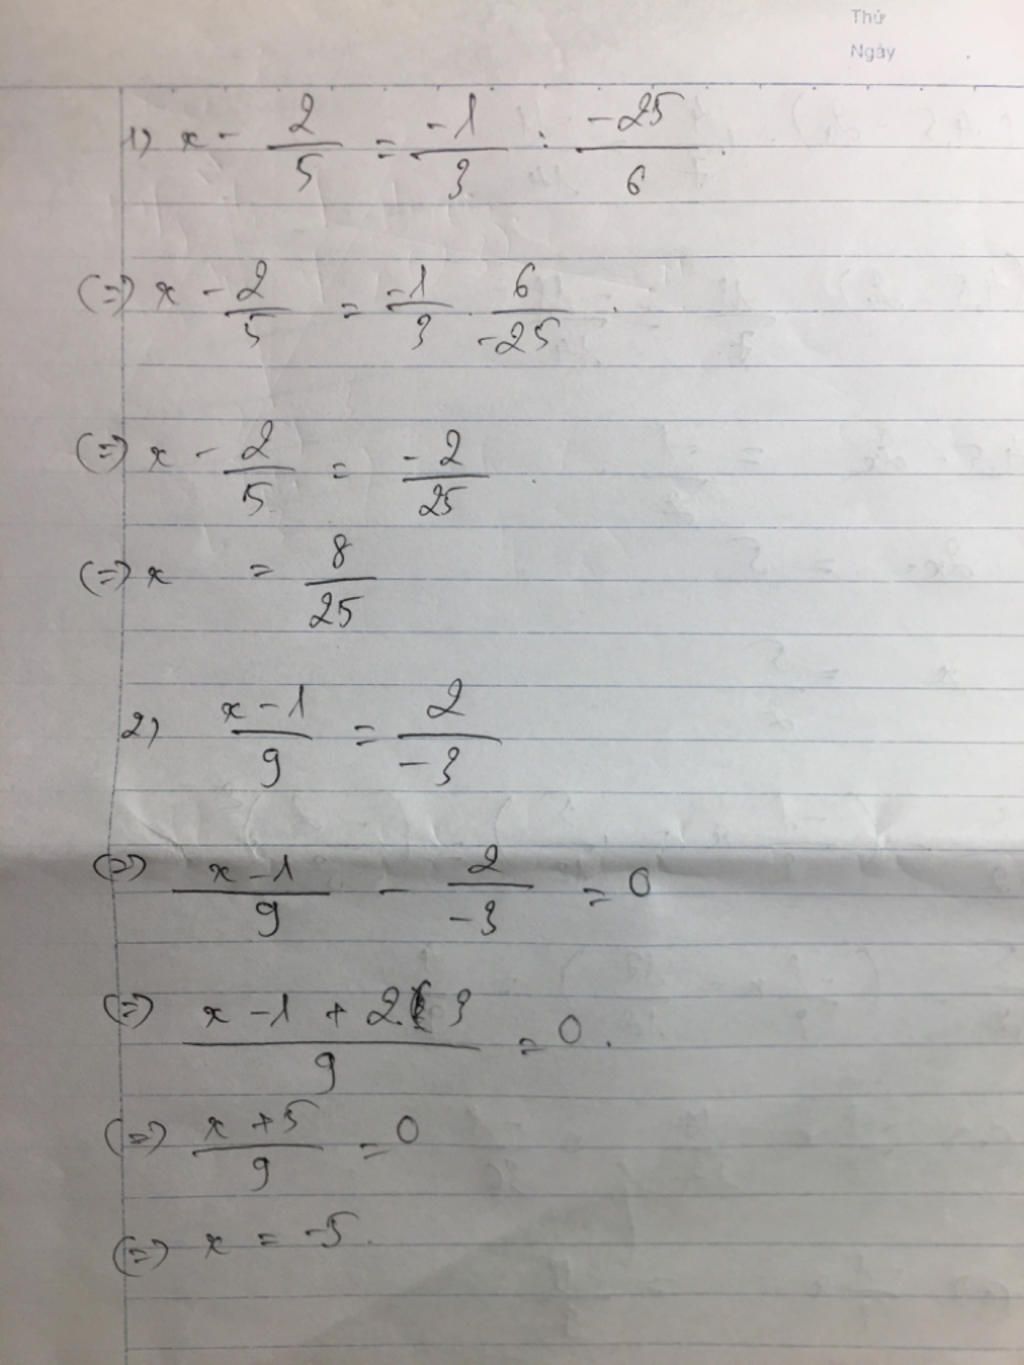 Thứ
Ngày
1) x - 2/5 = -1/3 : -25/6
(=) x - 2/5 = -1/3 . 6/-25
(=) x - 2/5 = -2/25
(=) x = 8/25
2) x-1/9 = 2/-3
(=) x-1/9 - 2/-3 = 0
(=) x-1+2.3/9 = 0.
(=) x+5/9 = 0
(=) x = -5.